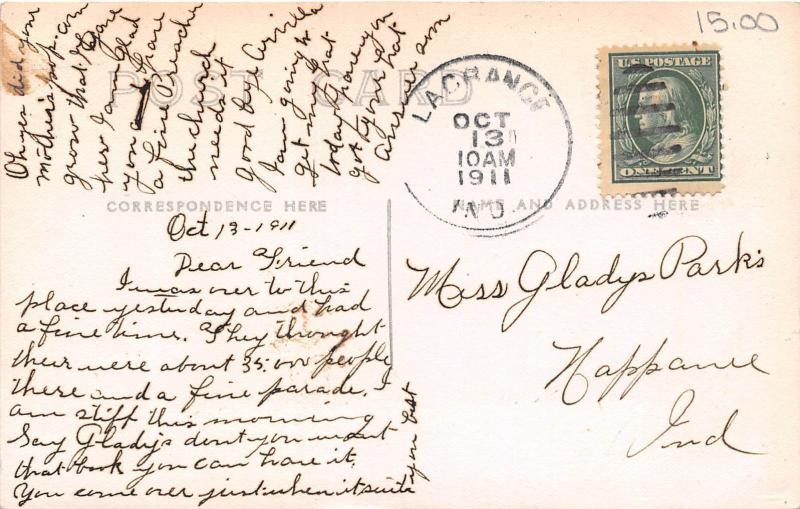 15.00
POST CARD
CORRESPONDENCE HERE
NAME AND ADDRESS HERE
U.S. POSTAGE
ONE CENT
LAGRANGE
OCT
13
10AM
1911
IND.
Oct 13-1911
Dear Friend
I was over to this
place yesterday and had
a fine time. They thought
their were about 35.000 people
there and a fine parade. I
am stiff this morning
Say Gladys dont you want
that book you can have it.
You come over just when it suits
you best
Oh yes did your
mothers pop.corn
grow that I gave
her I am glad
you a have
a fine Preacher
the church
needs it
Good bye
I am going to
get my hat
today have you
got your hat
Answer soon
Miss Gladys Parks
Nappanee
Ind